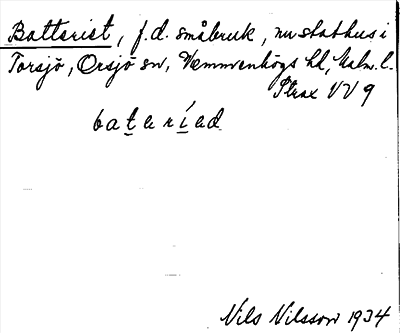 Batteriet, f.d. småbruk, nu stathus i
Torsjö, Örsjö sn, Vemmenhögs hd, Malm. l.
Plrax VV 9
bateriad
Nils Nilsson 1934